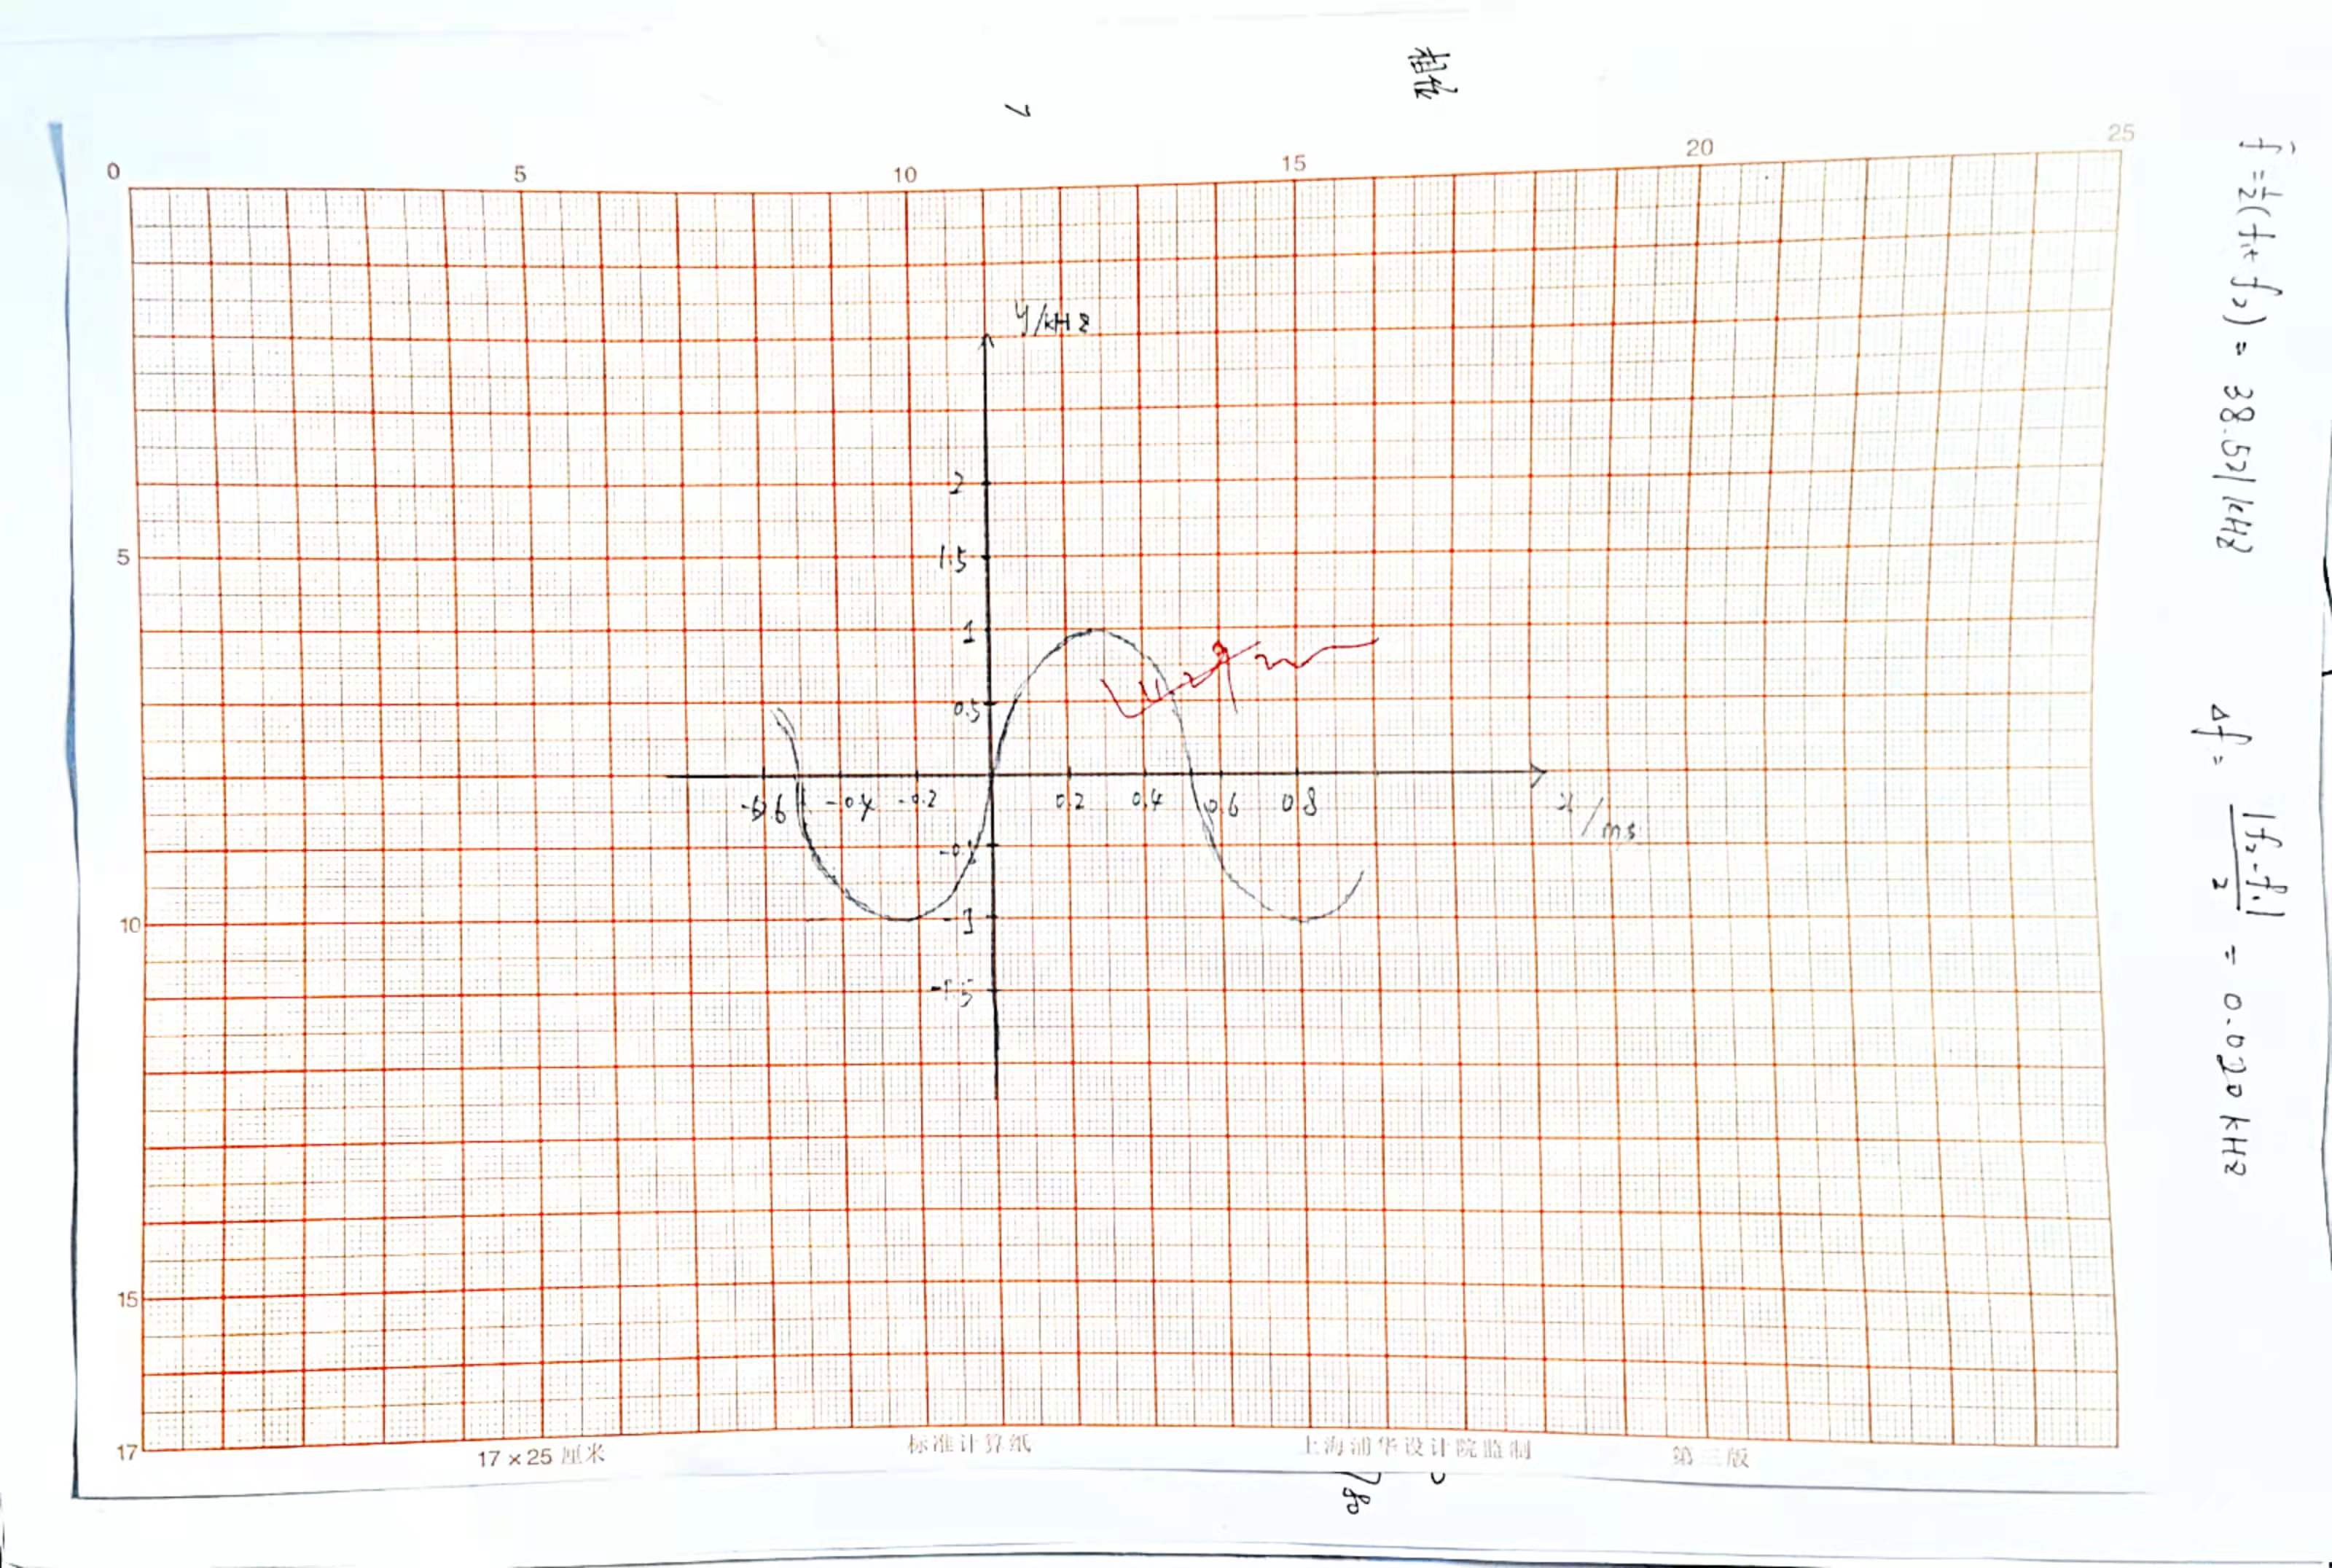 0 5 10 15 20 25
5
10
15
17
y/kHz
2
1.5
1
0.5
-0.6 -0.4 -0.2 0.2 0.4 0.6 0.8
x/ms
-1
-1.5
17×25厘米 标准计算纸 上海浦华设计院监制 第三版
f̄ = 1/2(f₁+f₂) = 38.521kHz
Δf = |f₂-f₁|/2 = 0.020kHz